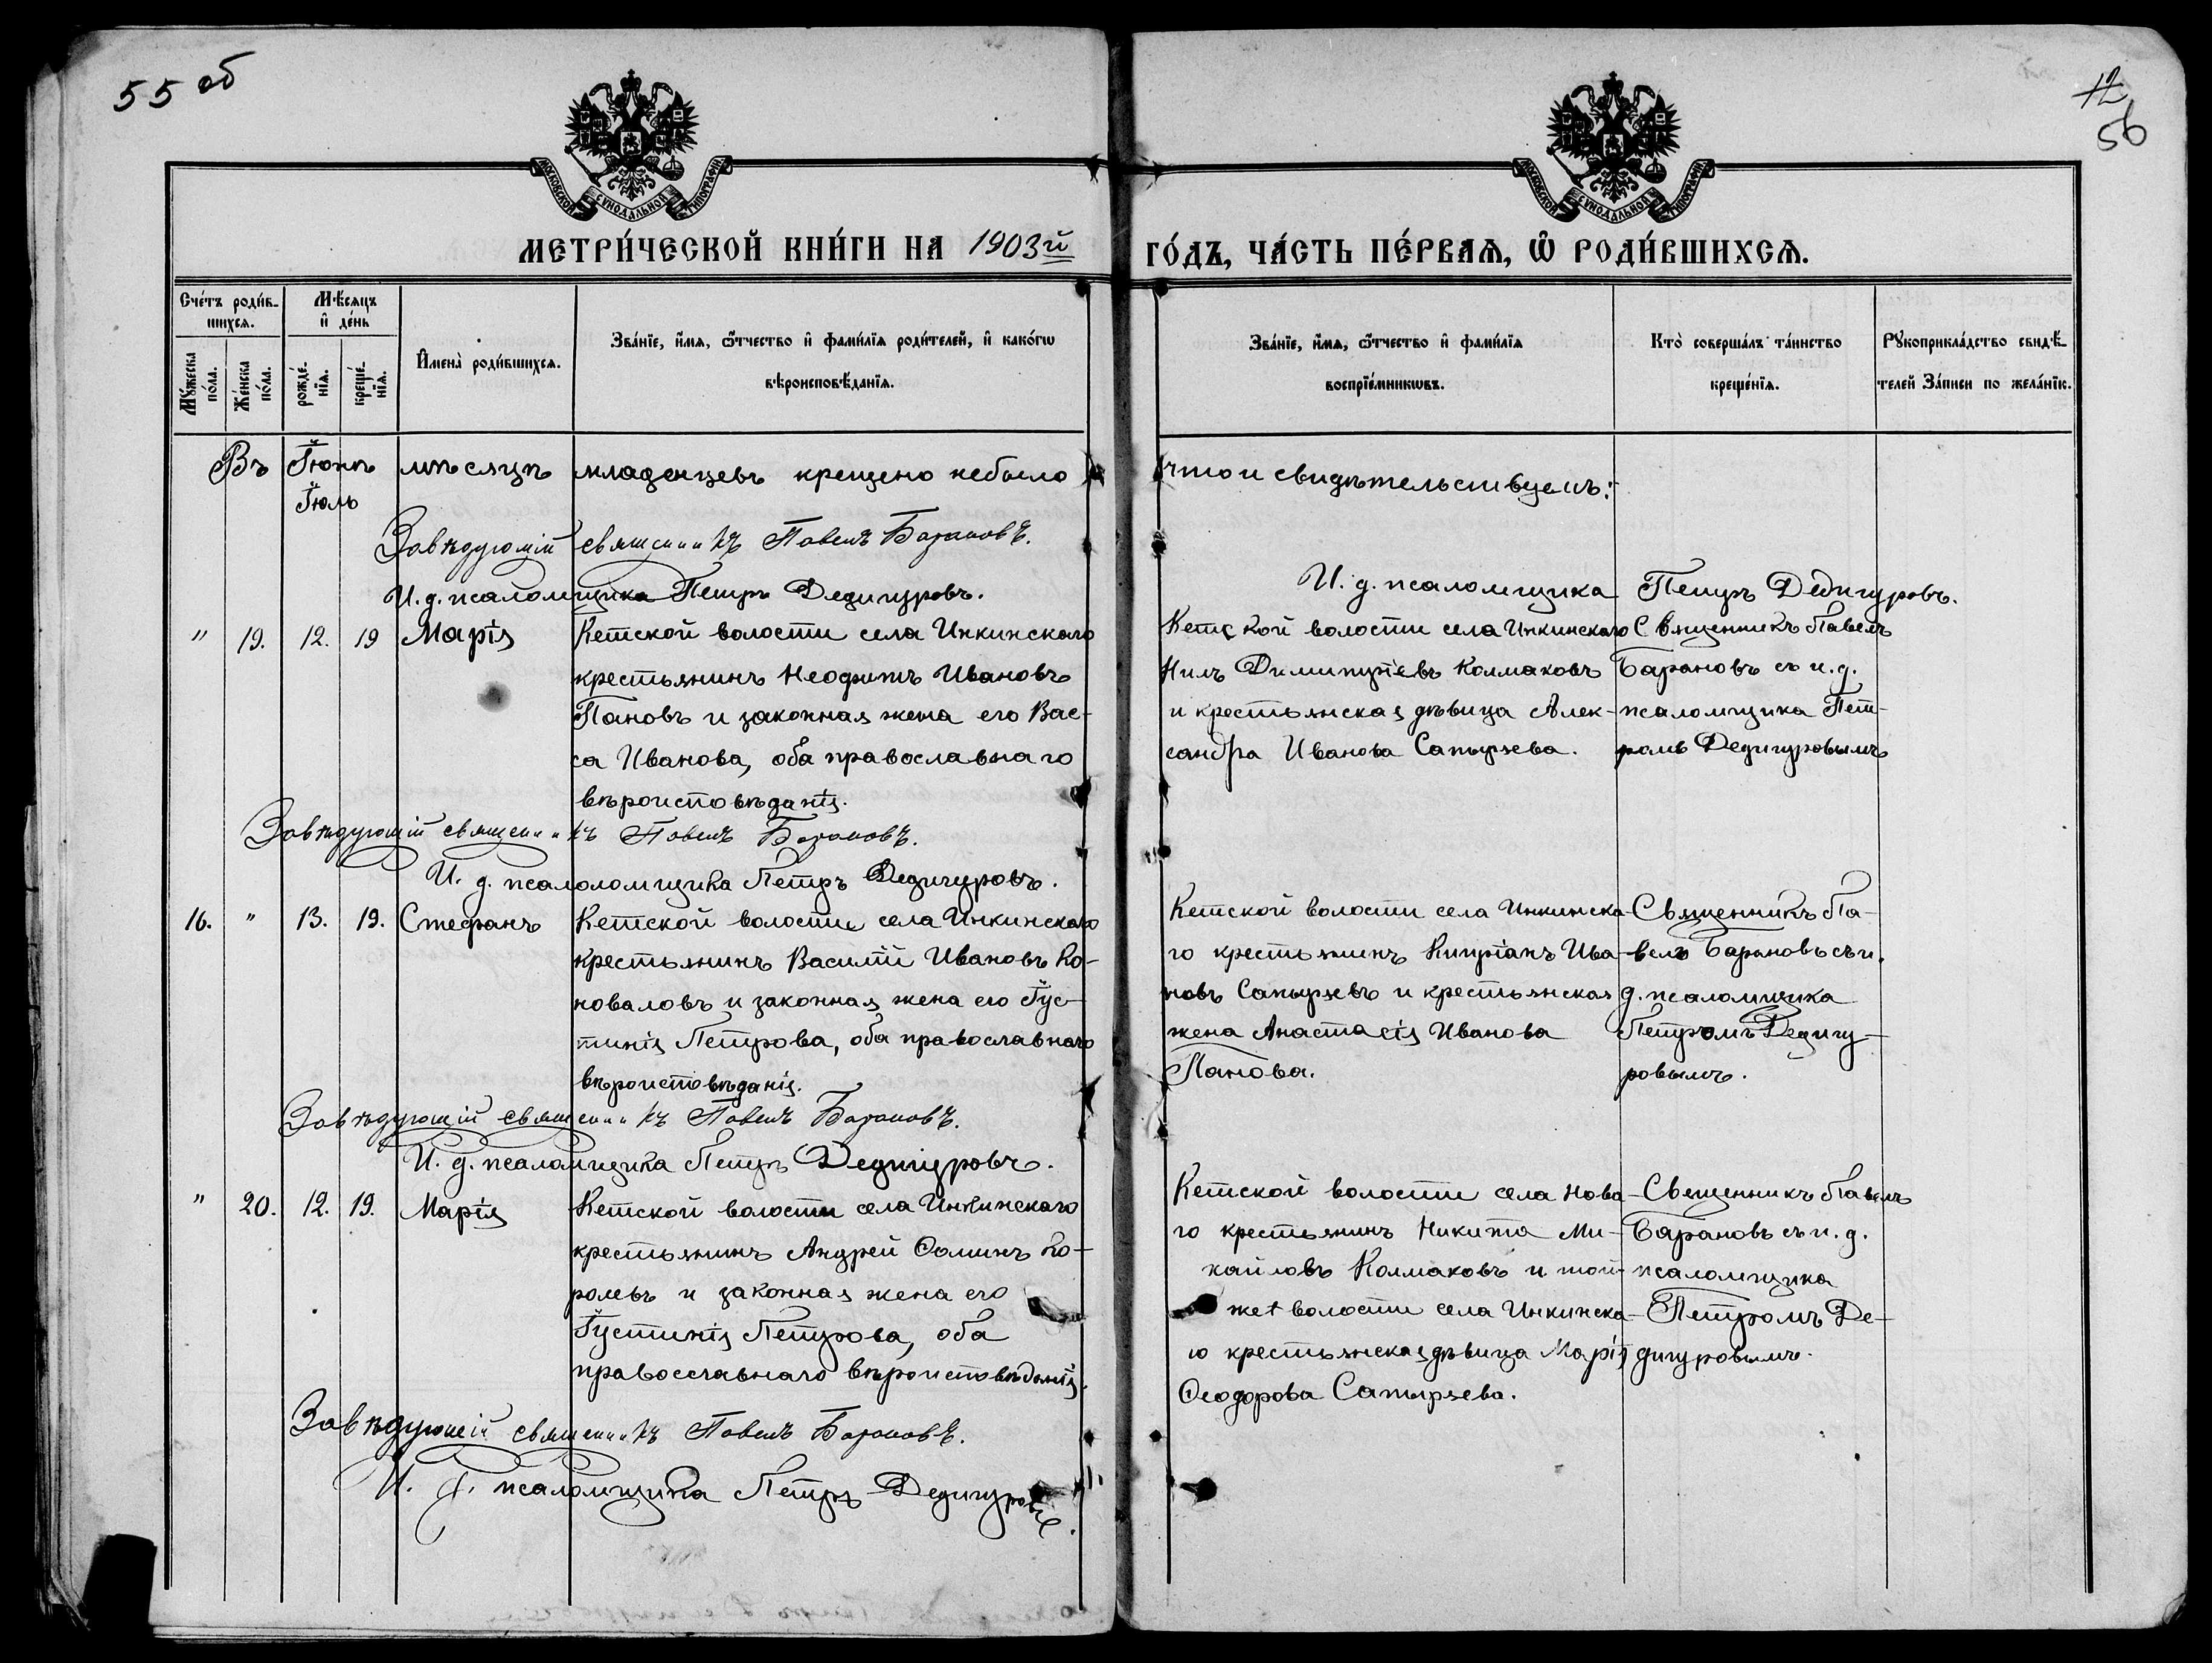 55 об
12
56
МОСКОВСКОЙ СѴНОДАЛЬНОЙ ТИПОГРАФІИ
МОСКОВСКОЙ СѴНОДАЛЬНОЙ ТИПОГРАФІИ
МЕТРИ́ЧЕСКОЙ КНИ́ГИ НА 1903й
ГО́ДЪ, ЧА́СТЬ ПЕ́РВАѦ, Ѽ РОДИ́ВШИХСѦ.
Сче́тъ роди́в-
шихсѧ.
Мꙋ́жеска по́ла.
Же́нска по́ла.
Мѣ́сѧцъ
и҆ де́нь
рожде́нїѧ.
креще́нїѧ.
И҆мена̀ роди́вшихсѧ.
Зва́нїе, и҆́мѧ, ѻ҆́тчество и҆ фами́лїѧ роди́телей, и҆ како́гѡ
вѣроисповѣ́данїѧ.
Зва́нїе, и҆́мѧ, ѻ҆́тчество и҆ фами́лїѧ
воспрїе́мникѡвъ.
Кто̀ соверша́лъ та́инство
креще́нїѧ.
Рꙋкоприкла́дство свидѣ́-
телей За́писи по жела́нїю.
Въ Іюнѣ мѣсяцѣ младенцевъ крещено небыло
что и свидѣтельствуемъ:
Іюль
Завѣдующій священникъ Павелъ Барановъ.
И. д. псаломщика Петръ Дедигуровъ.
И. д. псаломщика Петръ Дедигуровъ.
" 19. 12. 19 Марія
Кетской волости села Инкинскаго
крестьянинъ Неофитъ Ивановъ
Пановъ и законная жена его Вас-
са Иванова, оба православнаго
вѣроисповѣданія.
Кетской волости села Инкинскаго
Нилъ Димитріевъ Колмаковъ
и крестьянская дѣвица Алек-
сандра Иванова Сапырева.
Священникъ Павелъ
Барановъ съ и. д.
псаломщика Пет-
ромъ Дедигуровымъ
Завѣдующій священникъ Павелъ Барановъ.
И. д. псалоломщика Петръ Дедигуровъ.
16. " 13. 19. Стефанъ
Кетской волости села Инкинскаго
крестьянинъ Василій Ивановъ Ко-
новаловъ и законная жена его Іус-
тинія Петрова, оба православнаго
вѣроисповѣданія.
Кетской волости села Инкинска-
го крестьянинъ Кипріанъ Ива-
новъ Сапыревъ и крестьянская
жена Анастасія Иванова
Панова.
Священникъ Па-
велъ Барановъ съ и.
д. псаломщика
Петромъ Дедигу-
ровымъ.
Завѣдующій священникъ Павелъ Барановъ.
И. д. псаломщика Петръ Дедигуровъ.
" 20. 12. 19. Марія
Кетской волости села Инкинскаго
крестьянинъ Андрей Ѳоминъ Ко-
ролевъ и законная жена его
Іустинія Петрова, оба
православнаго вѣроисповѣданія.
Кетской волости села Нова-
го крестьянинъ Никита Ми-
хайловъ Колмаковъ и той-
же волости села Инкинска-
го крестьянская дѣвица Марія
Ѳеодорова Сапырева.
Священникъ Павелъ
Барановъ съ и. д.
псаломщика
Петромъ Де-
дигуровымъ.
Завѣдующій священникъ Павелъ Барановъ.
И. д. псаломщика Петръ Дедигуровъ.